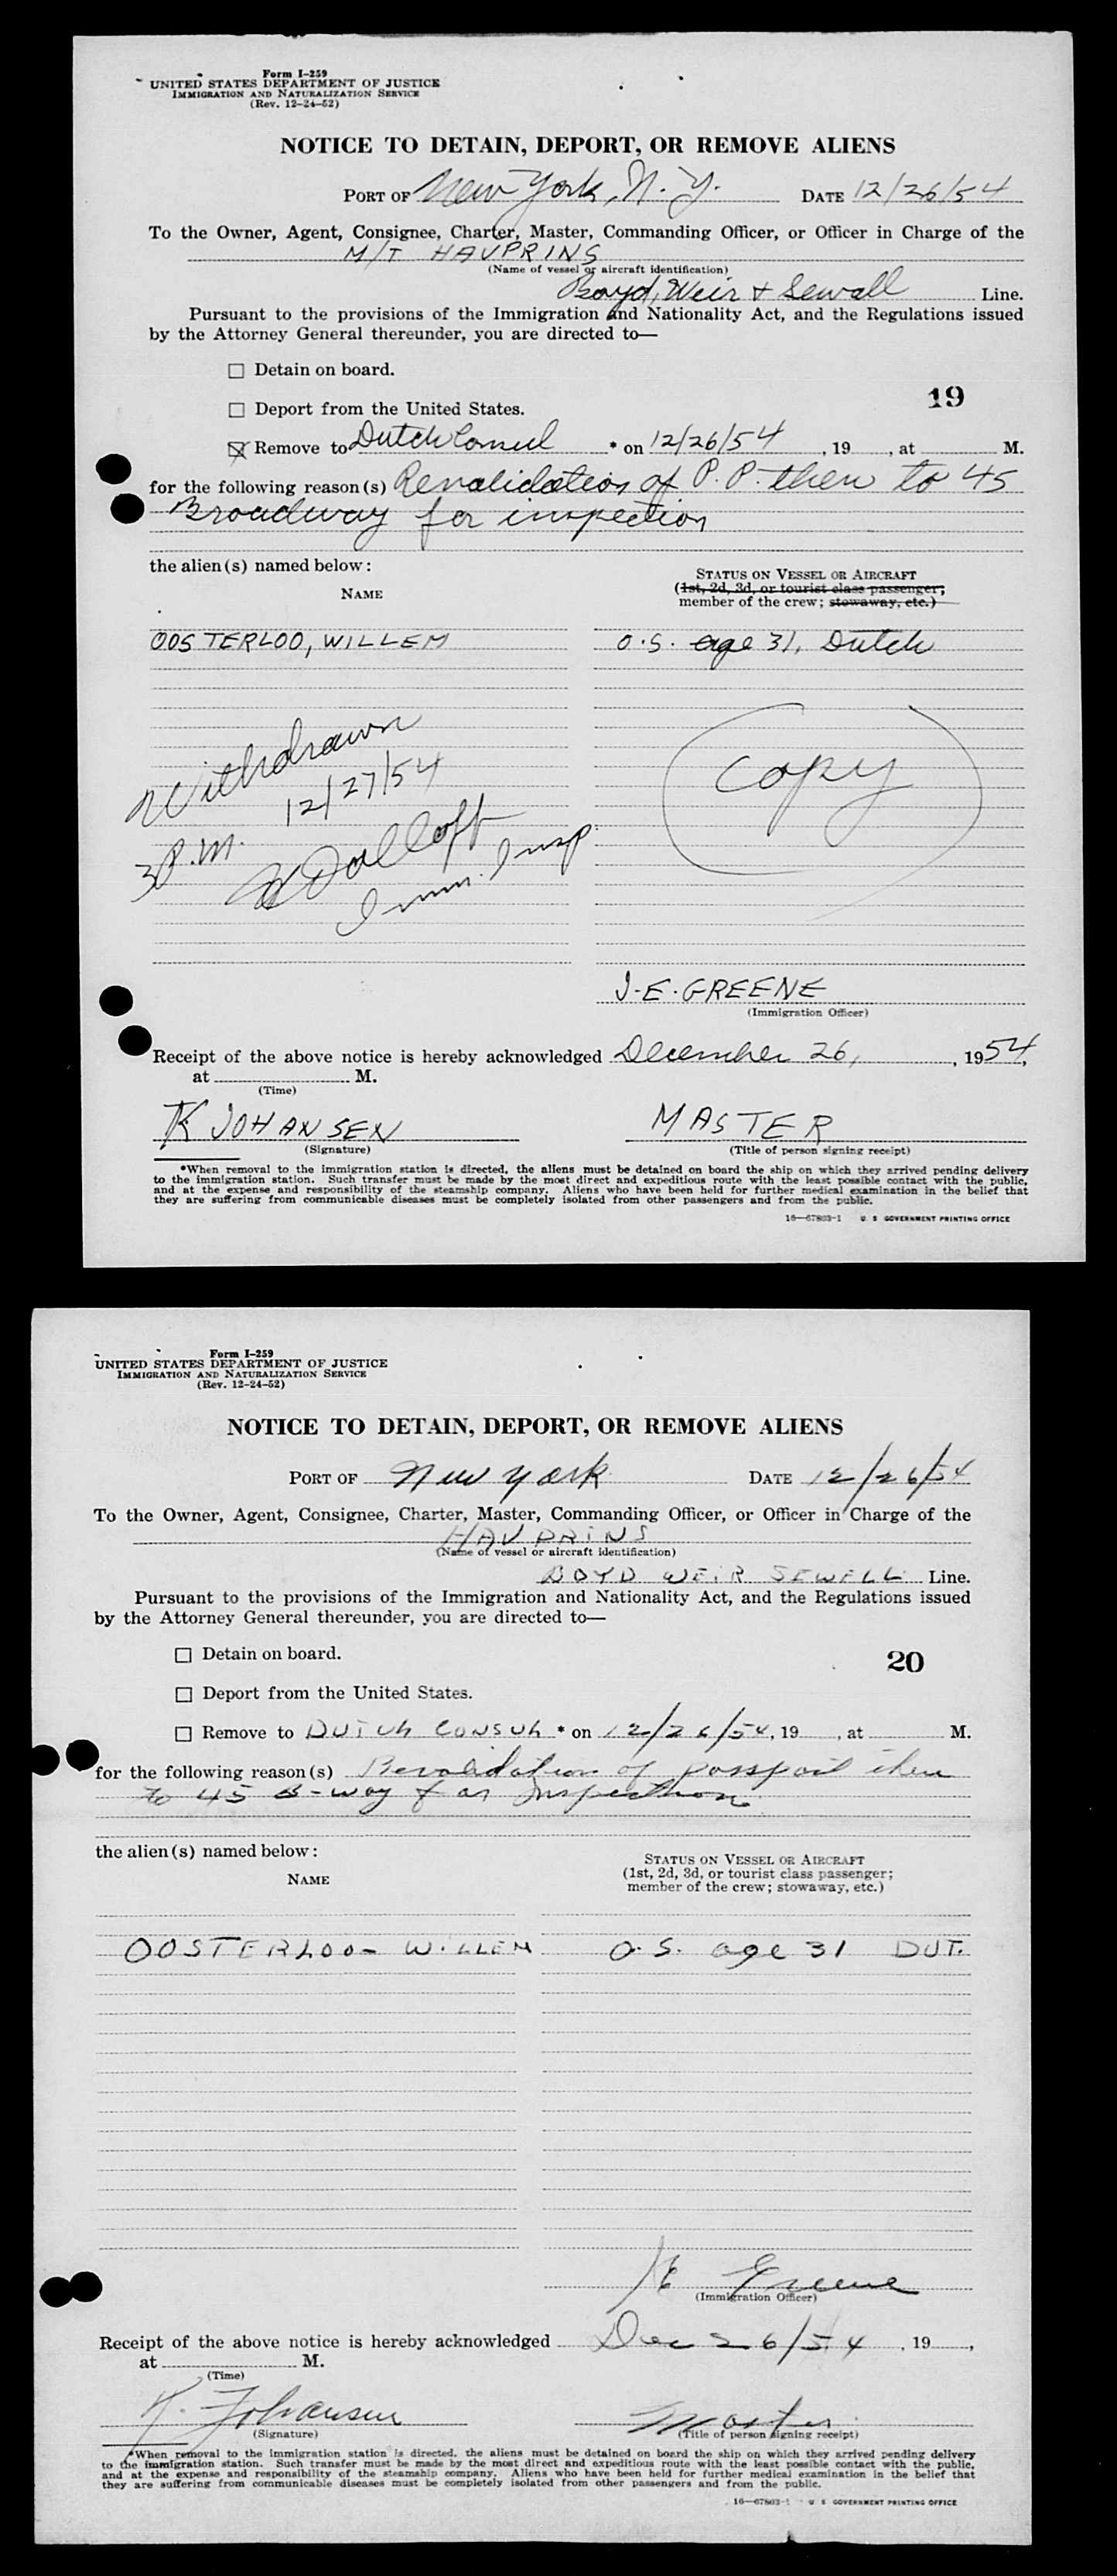 Form I-259
UNITED STATES DEPARTMENT OF JUSTICE
IMMIGRATION AND NATURALIZATION SERVICE
(Rev. 12-24-52)
NOTICE TO DETAIN, DEPORT, OR REMOVE ALIENS
PORT OF New York, N. Y. DATE 12/26/54
To the Owner, Agent, Consignee, Charter, Master, Commanding Officer, or Officer in Charge of the
M/T HAVPRINS
(Name of vessel or aircraft identification)
Boyd, Weir + Sewall Line.
Pursuant to the provisions of the Immigration and Nationality Act, and the Regulations issued
by the Attorney General thereunder, you are directed to—
☐ Detain on board.
19
☐ Deport from the United States.
☒ Remove to Dutch Consul * on 12/26/54, 19 , at M.
for the following reason(s) Revalidation of P. P. then to 45
Broadway for inspection
the alien(s) named below:
STATUS ON VESSEL OR AIRCRAFT
(1st, 2d, 3d, or tourist class passenger;
NAME
member of the crew; stowaway, etc.)
OOSTERLOO, WILLEM O.S. age 31, Dutch
Withdrawn
12/27/54
Copy
3 P.M.
Imm. Insp
J-E-GREENE
(Immigration Officer)
Receipt of the above notice is hereby acknowledged December 26, , 1954,
at M.
(Time)
K JOHANSEN MASTER
(Signature) (Title of person signing receipt)
*When removal to the immigration station is directed, the aliens must be detained on board the ship on which they arrived pending delivery
to the immigration station. Such transfer must be made by the most direct and expeditious route with the least possible contact with the public,
and at the expense and responsibility of the steamship company. Aliens who have been held for further medical examination in the belief that
they are suffering from communicable diseases must be completely isolated from other passengers and from the public.
16—67803-1 U. S. GOVERNMENT PRINTING OFFICE
Form I-259
UNITED STATES DEPARTMENT OF JUSTICE
IMMIGRATION AND NATURALIZATION SERVICE
(Rev. 12-24-52)
NOTICE TO DETAIN, DEPORT, OR REMOVE ALIENS
PORT OF New York DATE 12/26/54
To the Owner, Agent, Consignee, Charter, Master, Commanding Officer, or Officer in Charge of the
HAVPRINS
(Name of vessel or aircraft identification)
BOYD WEIR SEWELL Line.
Pursuant to the provisions of the Immigration and Nationality Act, and the Regulations issued
by the Attorney General thereunder, you are directed to—
☐ Detain on board.
20
☐ Deport from the United States.
☐ Remove to DUTCH CONSUL * on 12/26/54, 19 , at M.
for the following reason(s) Revalidation of passport then
to 45 B-way for Inspection
the alien(s) named below:
STATUS ON VESSEL OR AIRCRAFT
(1st, 2d, 3d, or tourist class passenger;
NAME
member of the crew; stowaway, etc.)
OOSTERLOO- WILLEM O.S. age 31 DUT.
JE Greene
(Immigration Officer)
Receipt of the above notice is hereby acknowledged Dec 26/54 , 19 ,
at M.
(Time)
K. Johansen Master
(Signature) (Title of person signing receipt)
*When removal to the immigration station is directed, the aliens must be detained on board the ship on which they arrived pending delivery
to the immigration station. Such transfer must be made by the most direct and expeditious route with the least possible contact with the public,
and at the expense and responsibility of the steamship company. Aliens who have been held for further medical examination in the belief that
they are suffering from communicable diseases must be completely isolated from other passengers and from the public.
16—67803-1 U S GOVERNMENT PRINTING OFFICE